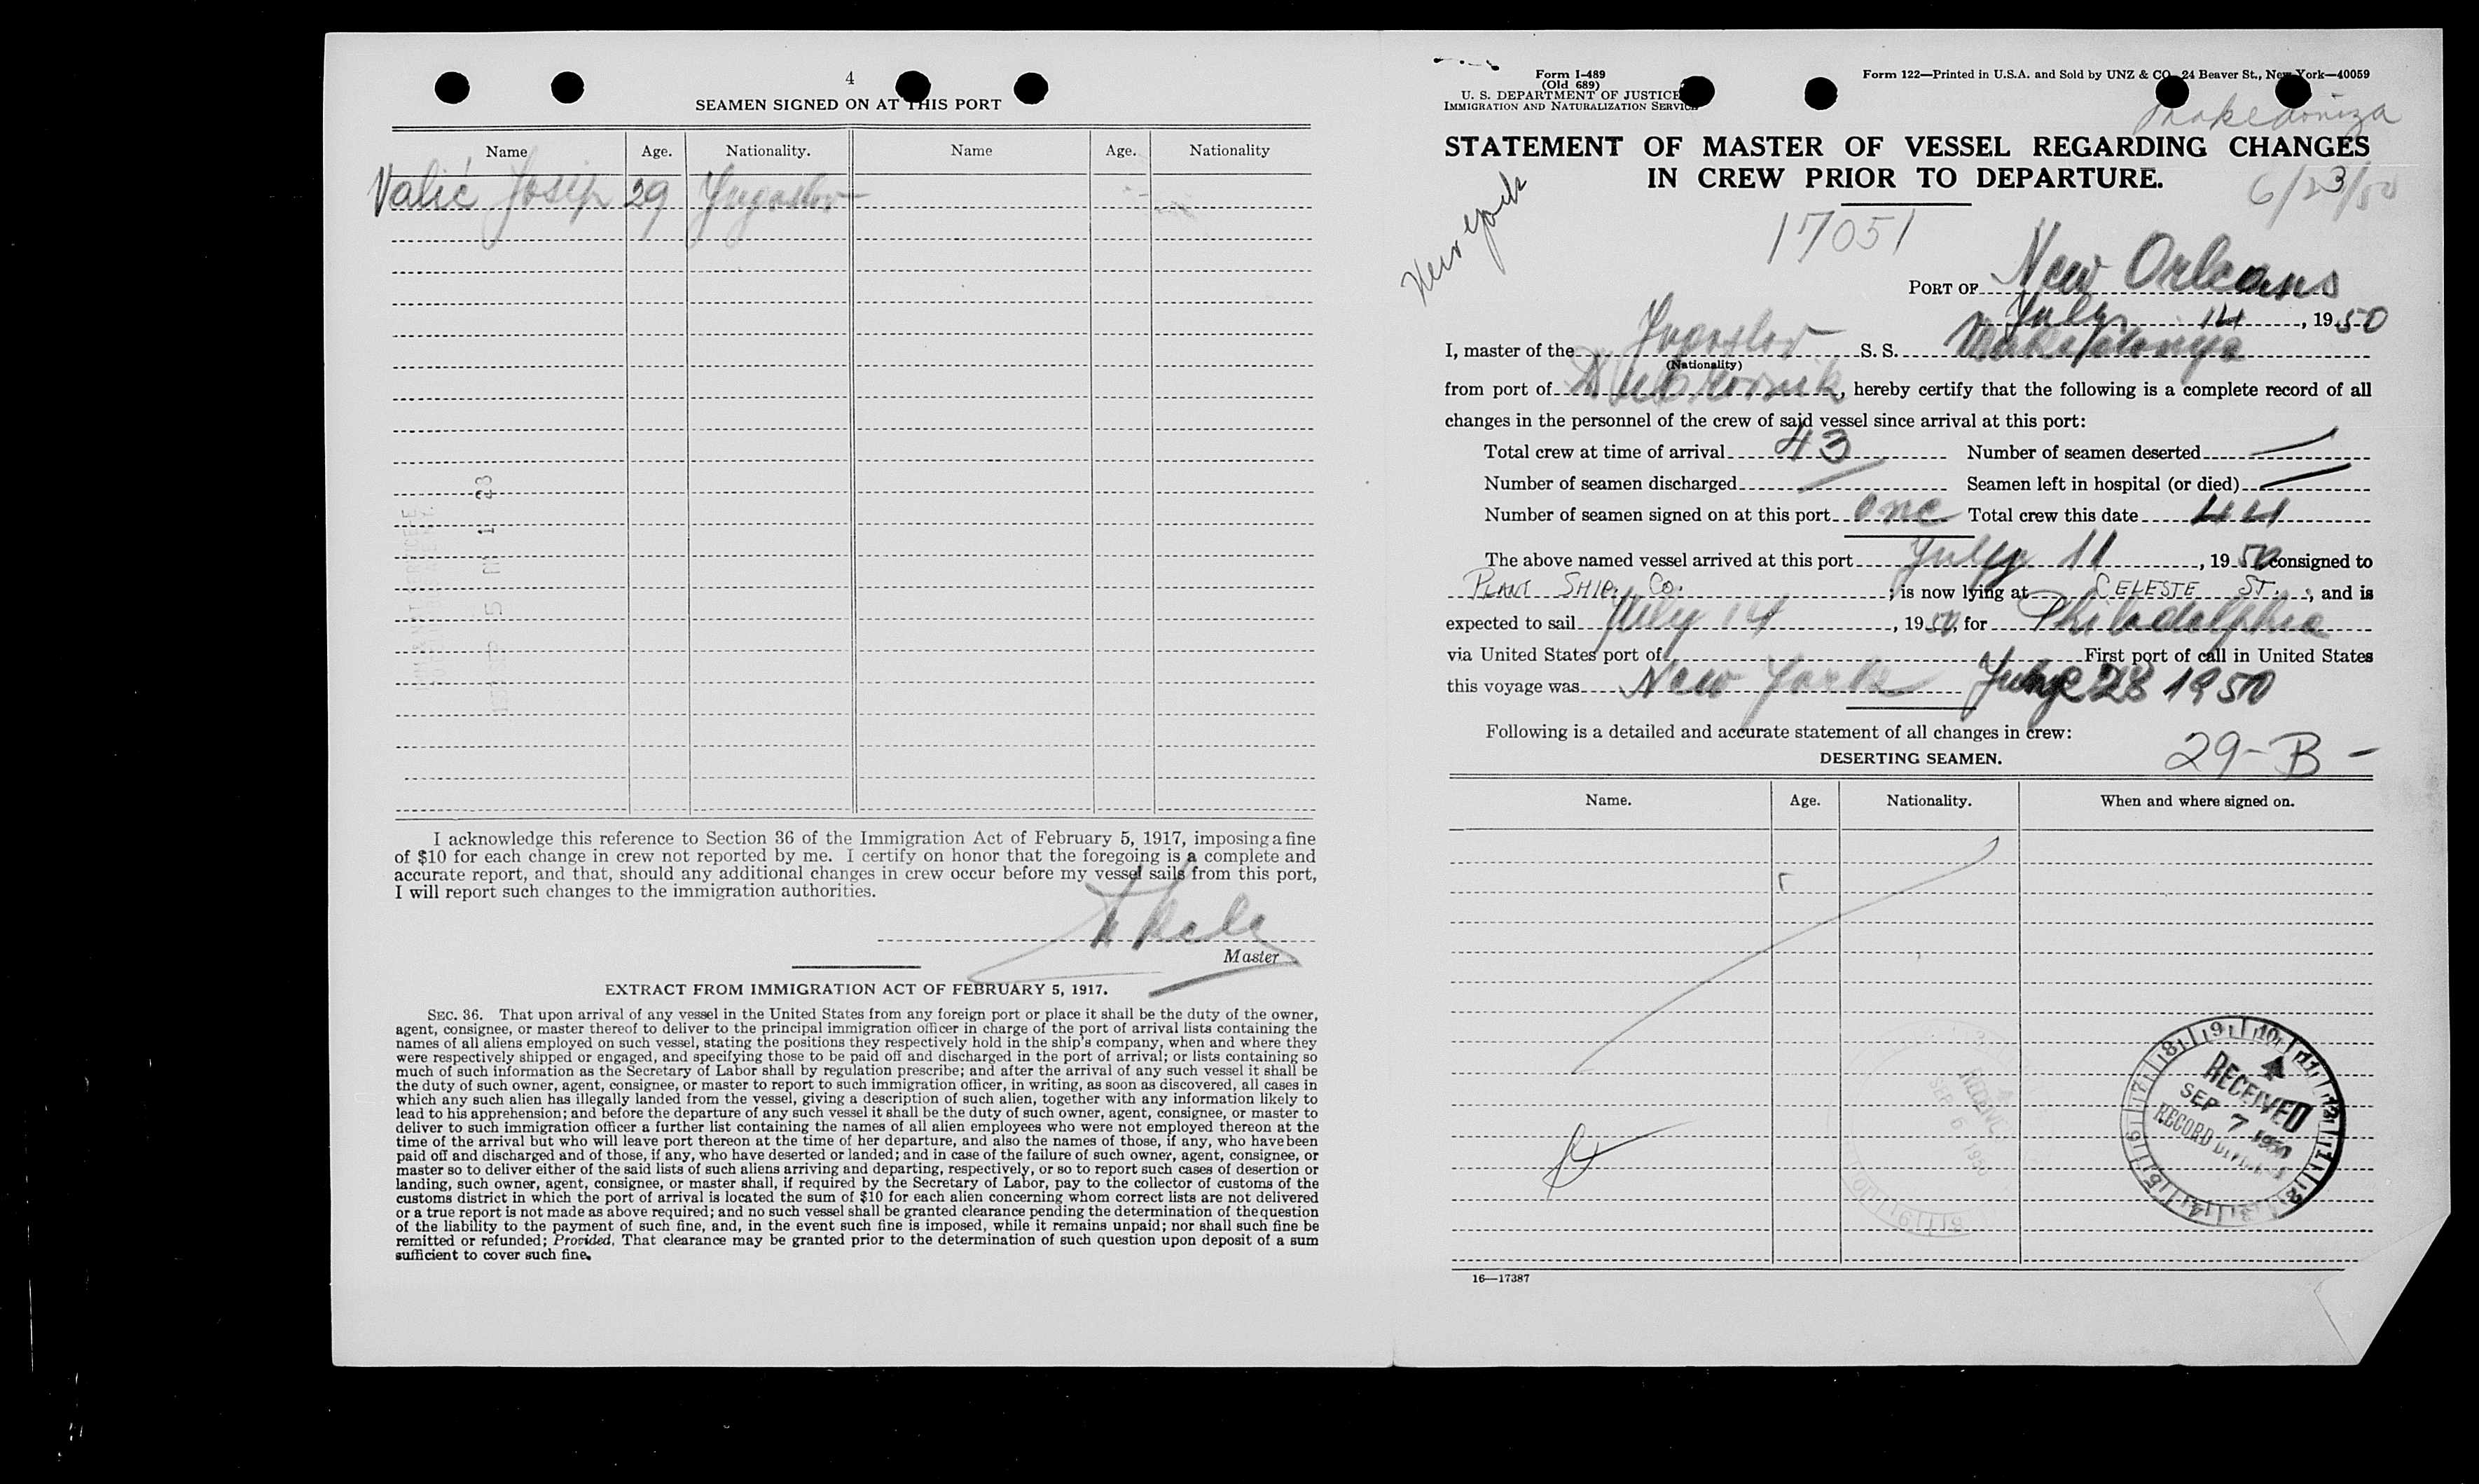 4
SEAMEN SIGNED ON AT THIS PORT
Name Age. Nationality. Name Age. Nationality
Valić Josip 29 Jugoslov
I acknowledge this reference to Section 36 of the Immigration Act of February 5, 1917, imposing a fine
of $10 for each change in crew not reported by me. I certify on honor that the foregoing is a complete and
accurate report, and that, should any additional changes in crew occur before my vessel sails from this port,
I will report such changes to the immigration authorities.
Master
EXTRACT FROM IMMIGRATION ACT OF FEBRUARY 5, 1917.
SEC. 36. That upon arrival of any vessel in the United States from any foreign port or place it shall be the duty of the owner,
agent, consignee, or master thereof to deliver to the principal immigration officer in charge of the port of arrival lists containing the
names of all aliens employed on such vessel, stating the positions they respectively hold in the ship's company, when and where they
were respectively shipped or engaged, and specifying those to be paid off and discharged in the port of arrival; or lists containing so
much of such information as the Secretary of Labor shall by regulation prescribe; and after the arrival of any such vessel it shall be
the duty of such owner, agent, consignee, or master to report to such immigration officer, in writing, as soon as discovered, all cases in
which any such alien has illegally landed from the vessel, giving a description of such alien, together with any information likely to
lead to his apprehension; and before the departure of any such vessel it shall be the duty of such owner, agent, consignee, or master to
deliver to such immigration officer a further list containing the names of all alien employees who were not employed thereon at the
time of the arrival but who will leave port thereon at the time of her departure, and also the names of those, if any, who have been
paid off and discharged and of those, if any, who have deserted or landed; and in case of the failure of such owner, agent, consignee, or
master so to deliver either of the said lists of such aliens arriving and departing, respectively, or so to report such cases of desertion or
landing, such owner, agent, consignee, or master shall, if required by the Secretary of Labor, pay to the collector of customs of the
customs district in which the port of arrival is located the sum of $10 for each alien concerning whom correct lists are not delivered
or a true report is not made as above required; and no such vessel shall be granted clearance pending the determination of the question
of the liability to the payment of such fine, and, in the event such fine is imposed, while it remains unpaid; nor shall such fine be
remitted or refunded; Provided, That clearance may be granted prior to the determination of such question upon deposit of a sum
sufficient to cover such fine.
Form I-489
(Old 689)
U. S. DEPARTMENT OF JUSTICE
IMMIGRATION AND NATURALIZATION SERVICE
Form 122—Printed in U.S.A. and Sold by UNZ & CO. 24 Beaver St., New York—40059
Makedoniza
STATEMENT OF MASTER OF VESSEL REGARDING CHANGES
IN CREW PRIOR TO DEPARTURE.
6/23/50
New York
17051
PORT OF New Orleans
July 14, 1950
I, master of the Jugoslov S. S. Makedonija
(Nationality)
from port of Dubrovnik, hereby certify that the following is a complete record of all
changes in the personnel of the crew of said vessel since arrival at this port:
Total crew at time of arrival 43 Number of seamen deserted
Number of seamen discharged Seamen left in hospital (or died)
Number of seamen signed on at this port one Total crew this date 44
The above named vessel arrived at this port July 11, 1950 consigned to
PLANT SHIP. CO. ; is now lying at CELESTE ST., and is
expected to sail July 14, 1950, for Philadelphia
via United States port of First port of call in United States
this voyage was New York June 28 1950
Following is a detailed and accurate statement of all changes in crew:
29-B-
DESERTING SEAMEN.
Name. Age. Nationality. When and where signed on.
RECEIVED
SEP 6 1950
RECEIVED
SEP 7 1950
16—17387